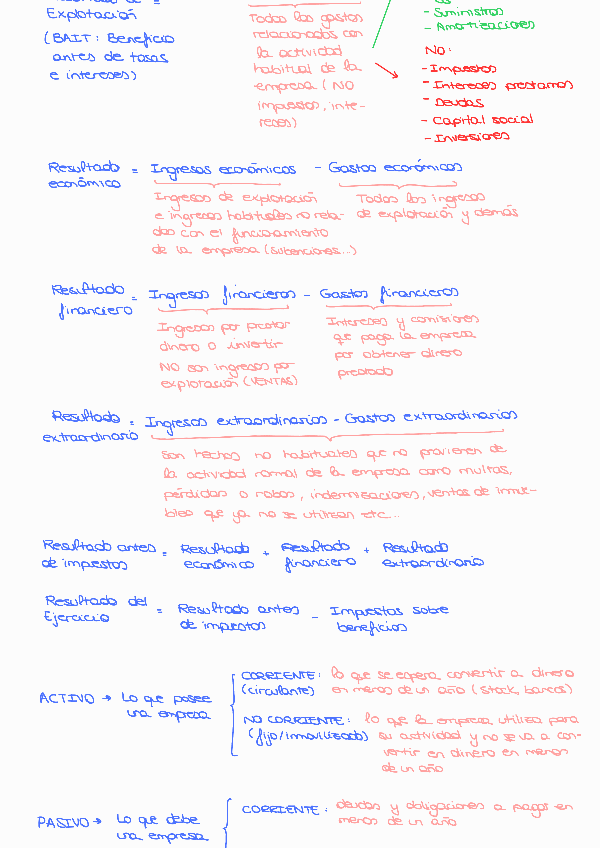 Explotación
(BAIT: Beneficio
antes de tasas
e intereses)
Todos los gastos
relacionados con
la actividad
habitual de la
empresa (NO
impuestos, inte-
reses)
- Suministros
- Amortizaciones
NO:
- Impuestos
- Intereses prestamos
- Deudas
- Capital social
- Inversiones
Resultado económico = Ingresos económicos - Gastos económicos
Ingresos de explotación
e ingresos habituales no rela-
dos con el funcionamiento
de la empresa (subenciones...)
Todos los ingresos
de explotación y demás
Resultado financiero = Ingresos financieros - Gastos financieros
Ingresos por prestar
dinero o invertir
NO son ingresos por
explotación (VENTAS)
Intereses y comisiones
que paga la empresa
por obtener dinero
prestado
Resultado extraordinario = Ingresos extraordinarios - Gastos extraordinarios
Son hechos no habituales que no provienen de
la actividad normal de la empresa como multas,
pérdidas o robos, indemnizaciones, ventas de inmue-
bles que ya no se utilizan etc...
Resultado antes de impuestos = Resultado económico + Resultado financiero + Resultado extraordinario
Resultado del Ejercicio = Resultado antes de impuestos - Impuestos sobre beneficios
ACTIVO → Lo que posee
una empresa
CORRIENTE: lo que se espera convertir a dinero
(circulante) en menos de un año (stock, bancos)
NO CORRIENTE: lo que la empresa utiliza para
(fijo/inmovilizado) su actividad y no se va a con-
vertir en dinero en menos
de un año
PASIVO → Lo que debe
una empresa
CORRIENTE: deudas y obligaciones a pagar en
menos de un año